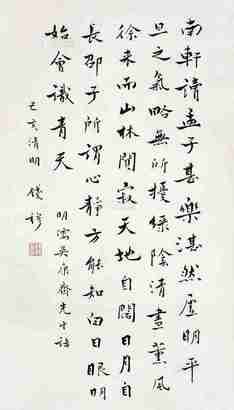 南軒讀孟子甚樂湛然虛明平
旦之氣略無所撓綠陰清晝薰風
徐來而山林闃寂天地自闊日月自
長邵子所謂心靜方能知白日眼明
始會識青天
明儒吳康齋先生語
己亥清明 錢穆